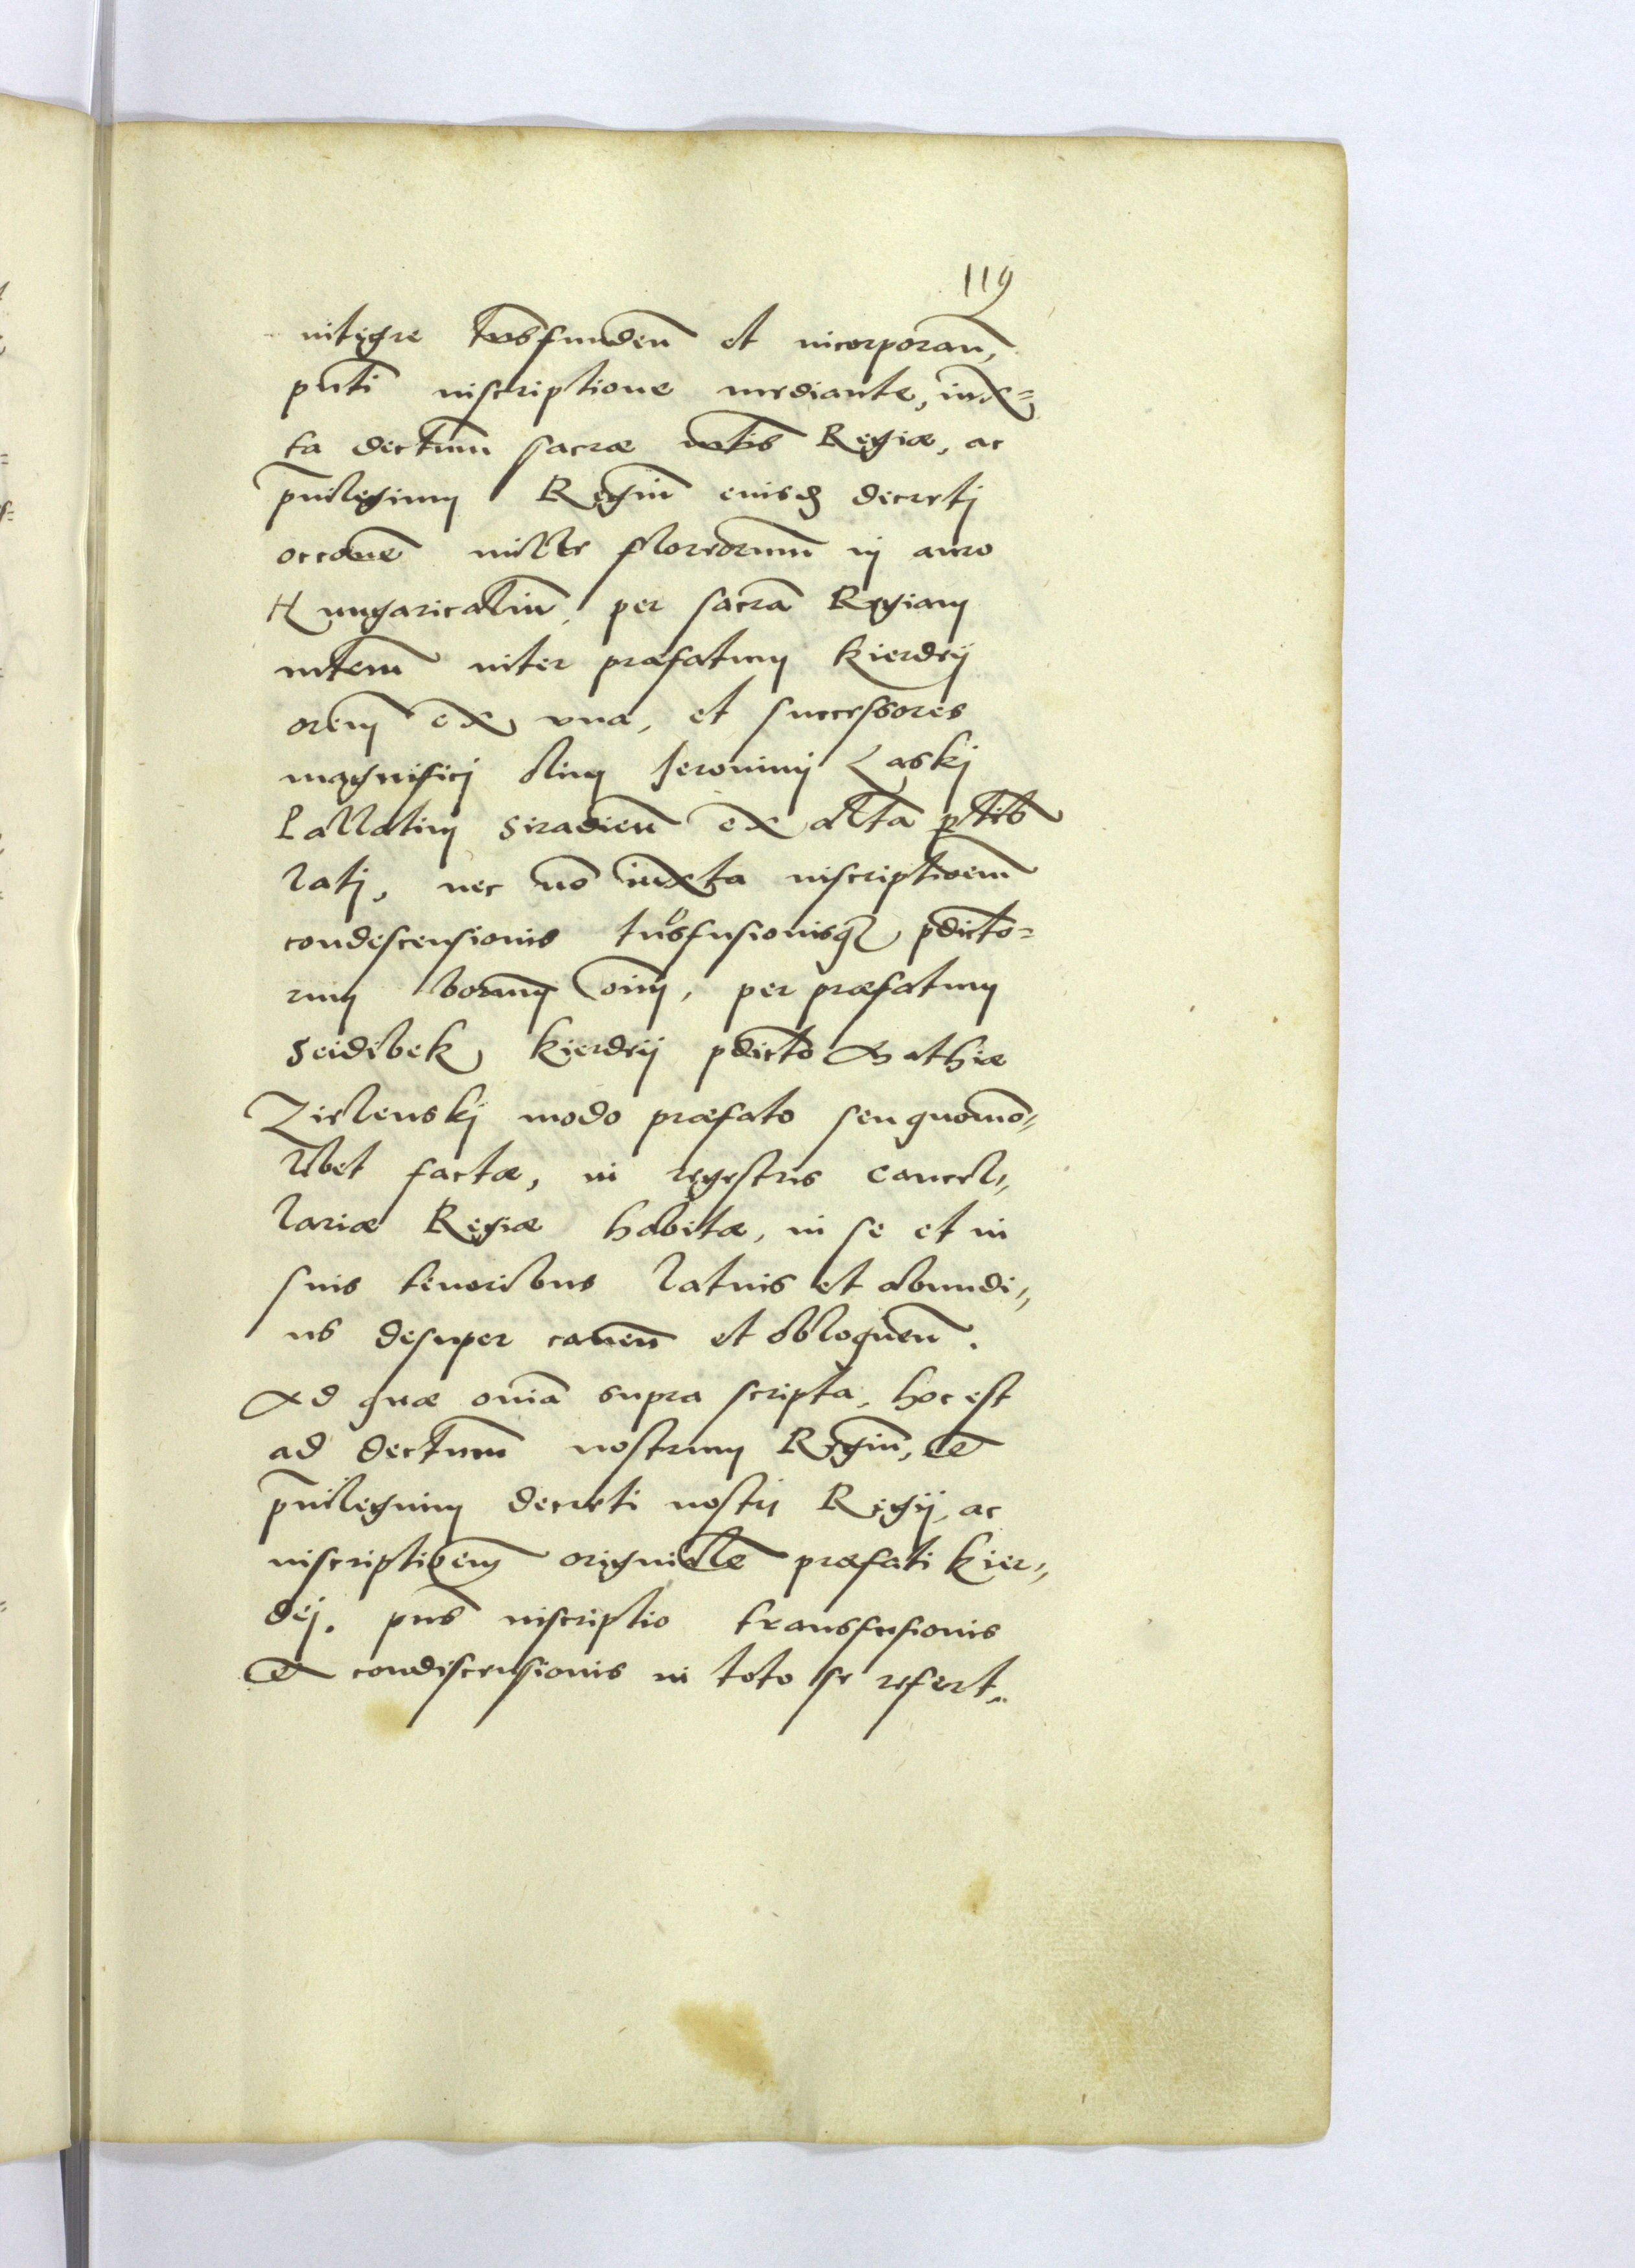 119
integre trãsfunden̄ et incorporan̄,
pn̄ti inscriptione mediante, iux=
ta decr̄tum sacræ mt̄is Regiæ, ac
p̄uilegium Regiū euisd decreti
occōne mille floreorum in auro
Hungaricaliū, per sacrā Regiam
mt̄em inter præfatum Kierdeij
orem̄ ex una, et successores
magnifici olim Ieronimi Laski
Pallatini Siradien̄ ex altā p̄tib
lati, nec nō iuxta inscriptioem̄
condescensionis trãsfusionisq pdicto=
rum bonorum om̄m, per præfatum
Seidibek Kierdeij pdicto Mathiæ
Zielenski modo præfato seu quomō=
libet factæ, in regestris cancel=
lariæ Regiæ habitæ, in se et in
suis tenoribus latius et abundi=
us desuper canen̄ et obloquen̄.
Ad quæ om̄ia supra scripta, hoc est
ad decr̄tum nostrum Regiū, et
p̄uilegium decreti nostri Regij, ac
inscriptioem̄ originalē præfati Kier=
dej. pn̄s inscriptio transfusionis
et condiscensionis in toto se refert.